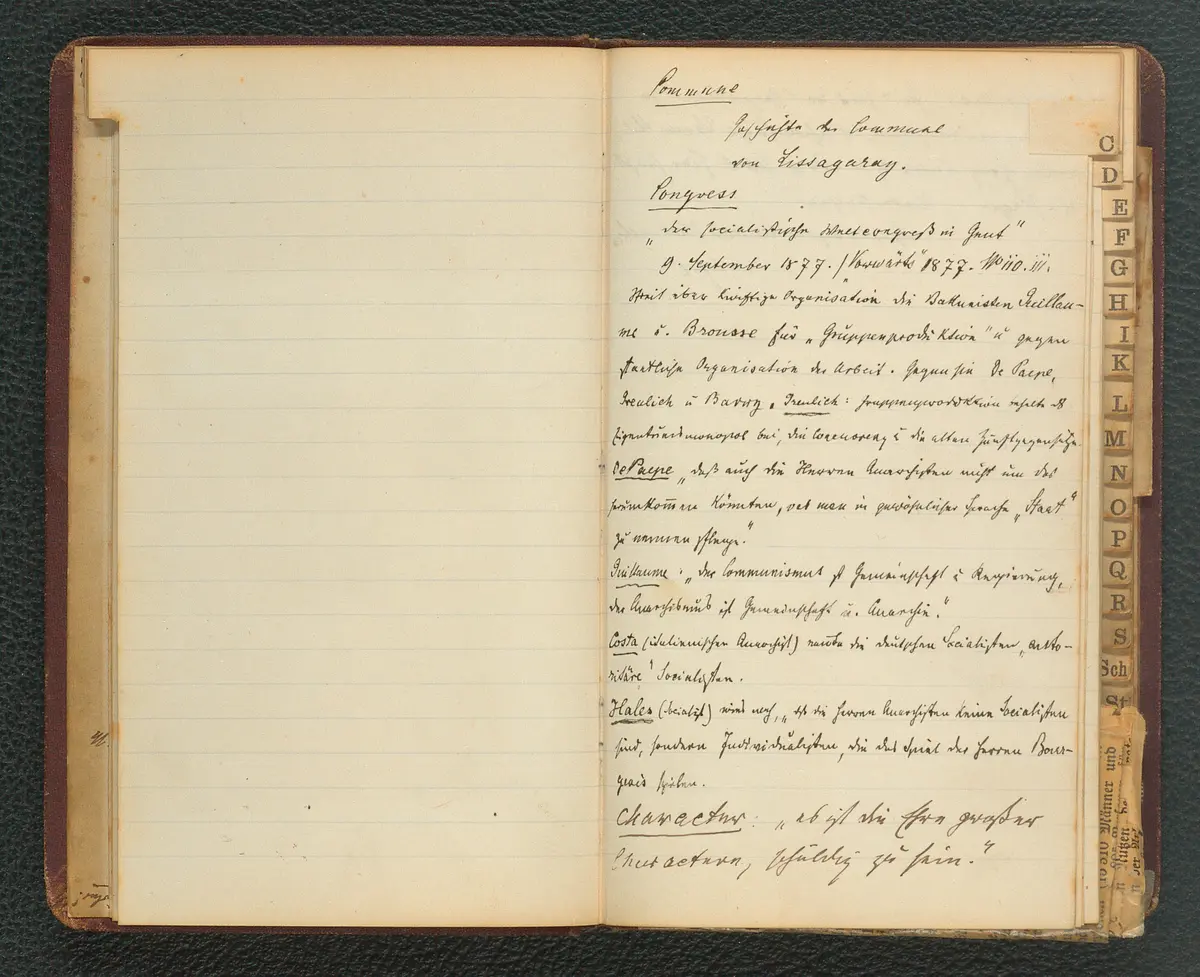 Commune
Geschichte der Commune
von Lissagaray.
Congress
„der socialistische Weltcongreß in Gent“
9. September 1877. / „Vorwärts“ 1877. No 110. 111.
Streit über künftige Organisation die Bakunisten Guillau-
me u. Brousse für „Gruppenproduktion“ u gegen
staatliche Organisation der Arbeit. Gegen sie De Paepe,
Greulich u Barry. Greulich: Gruppenproduktion behalte das
Eigentumsmonopol bei, die Concurrenz u die alten Zunftgegensätze.
De Paepe „daß auch die Herren Anarchisten nicht um das
herumkommen könnten, was man in gewöhnlicher Sprache „Staat“
zu nennen pflege.“
Guillaume: „der Communismus ist Gemeinschaft u Regierung,
der Anarchismus ist Gemeinschaft u. Anarchie.“
Costa (italienischer Anarchist) nannte die deutschen Socialisten „autto-
ritäre“ Socialisten.
Hales (Socialist) wies nach, „daß die Herren Anarchisten keine Socialisten
sind, sondern Individualisten, die das Spiel der Herren Bour-
geois spielen.
Character: „es ist die Ehre großer
Charactere, schuldig zu sein.“
C
D
E
F
G
H
I
K
L
M
N
O
P
Q
R
S
Sch
St
Männer und